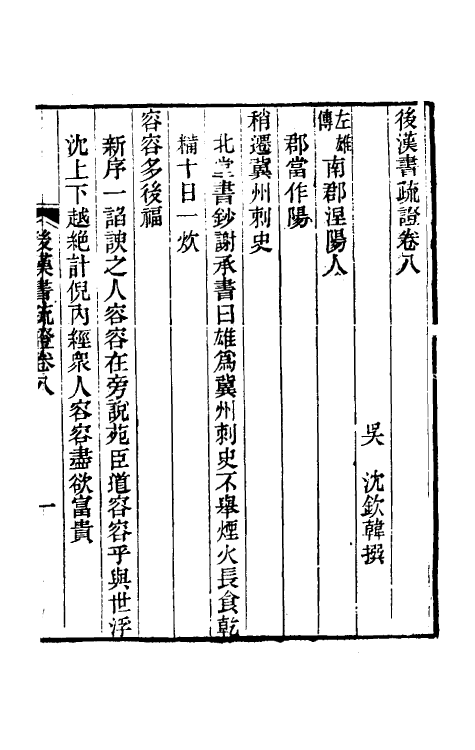 後漢書疏證卷八
吳 沈欽韓撰
左雄傳南郡涅陽人
郡當作陽
稍遷冀州刺史
北堂書鈔謝承書曰雄爲冀州刺史不舉煙火長食乾
糒十日一炊
容容多後福
新序一諂諛之人容容在旁說苑臣道容容乎與世浮
沈上下越絶計倪內經衆人容容盡欲富貴
後漢書疏證卷八 一